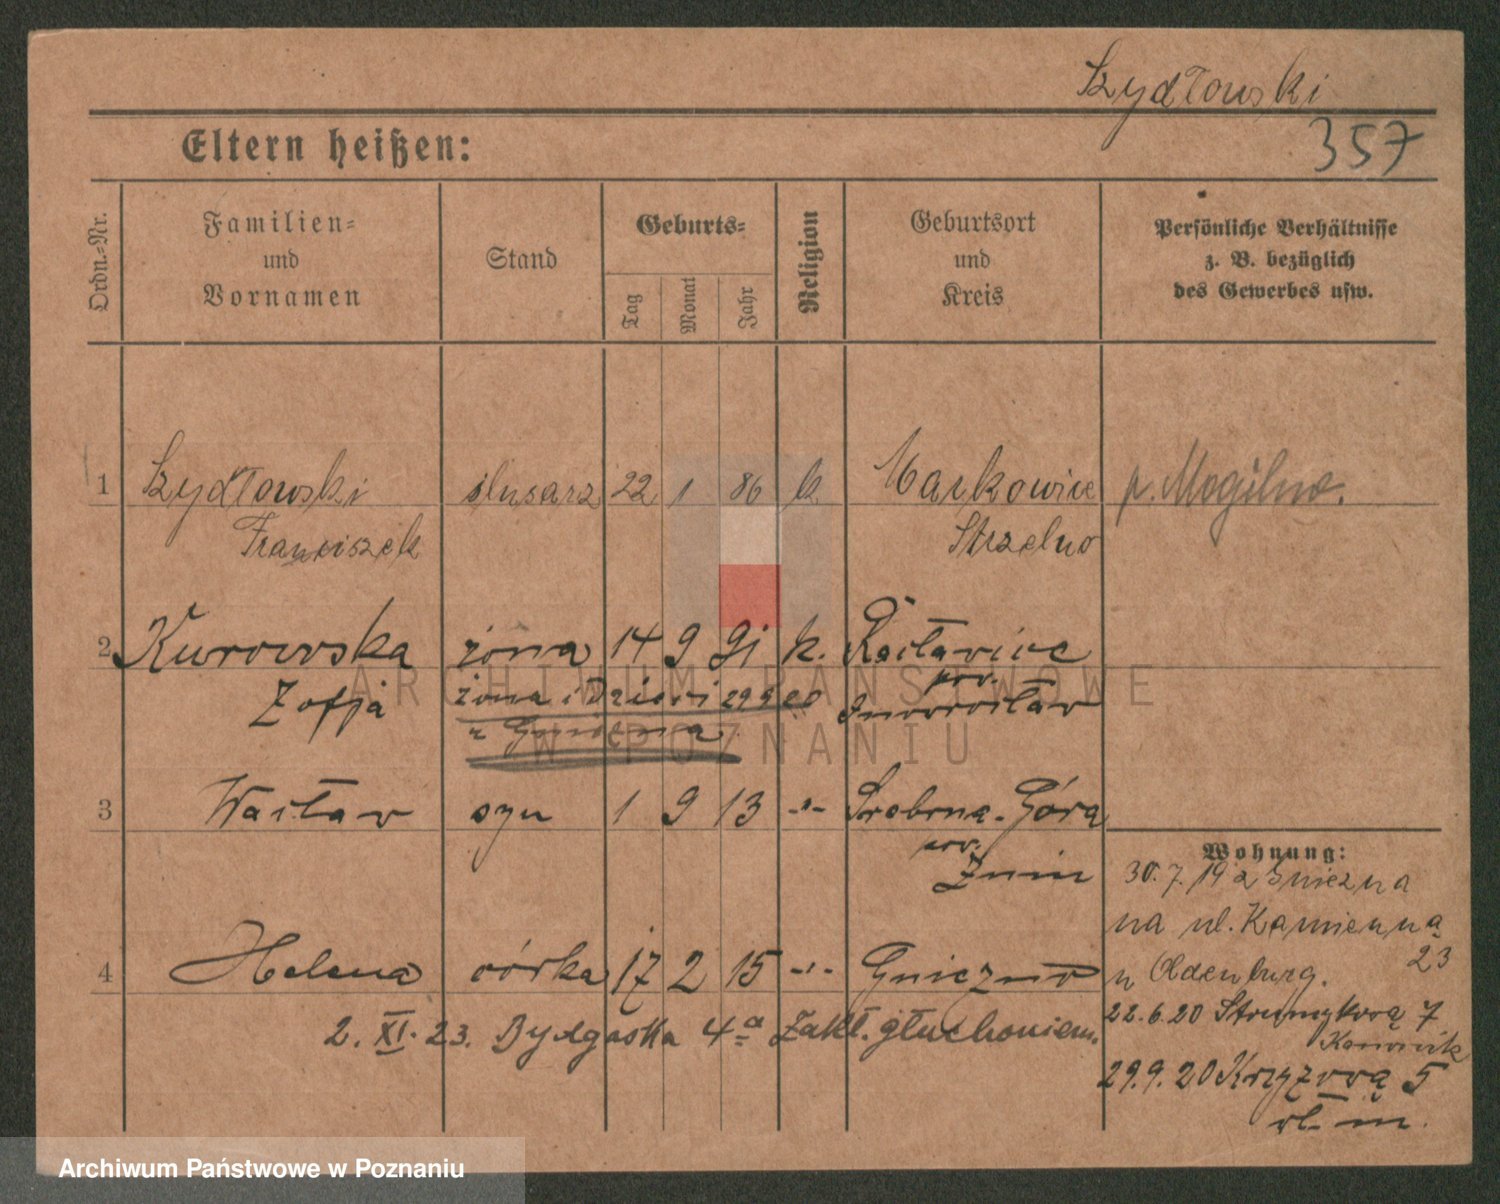 Szydłowski
357
Eltern heißen:
Ordn.-Nr.
Familien-
und
Vornamen
Stand
Geburts-
Tag
Monat
Jahr
Religion
Geburtsort
und
Kreis
Persönliche Verhältnisse
z. B. bezüglich
des Gewerbes usw.
1 Szydłowski ślusarz 22 1 86 k. Markowice p. Mogilno.
Franciszek Strzelno
2 Kurowska żona 14 9 91 k. Racławice
Zofja żona i Dzieci 29 9 20 pow. Inowrocław
z Gniezna
3 Wacław syn 1 9 13 -"- Srebrna-Góra
pow. Żnin
Wohnung:
30.7.19 z Gniezna
na ul. Kamienną
23
4 Helena córka 17 2 15 -"- Gniezno
u Oldenburg.
2. XI. 23. Bydgoska 4a Zakł. głuchoniem.
22.6.20 Strumykową 7
29.9.20 Krzyżową 5
wł. m.
ARCHIWUM PAŃSTWOWE
W POZNANIU
Archiwum Państwowe w Poznaniu